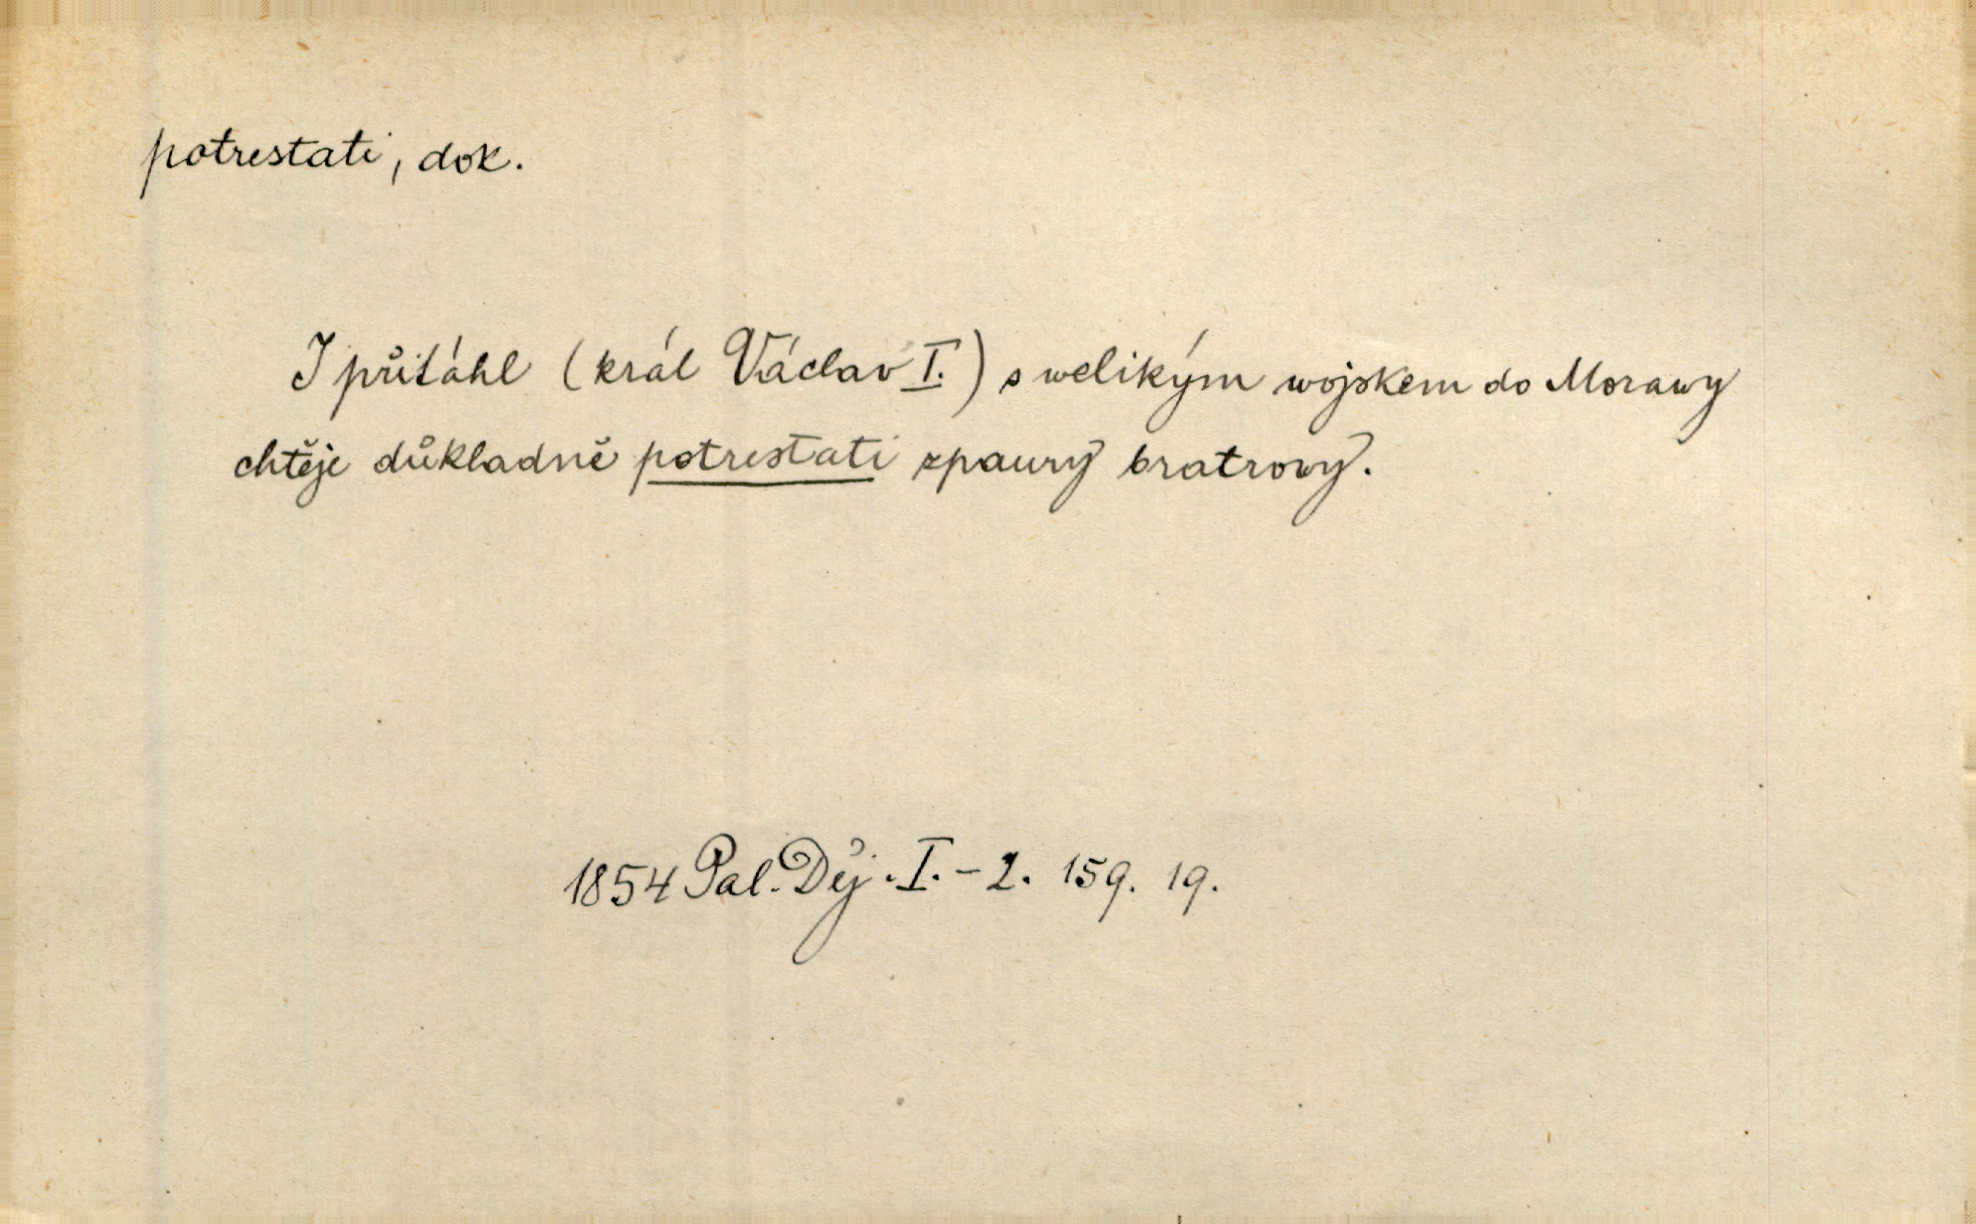 potrestati, dok.
I přitáhl (král Václav I.) s welikým wojskem do Morawy
chtěje důkladně potrestati zpaury bratrowy.
1854 Pal. Děj. I. - 2. 159. 19.